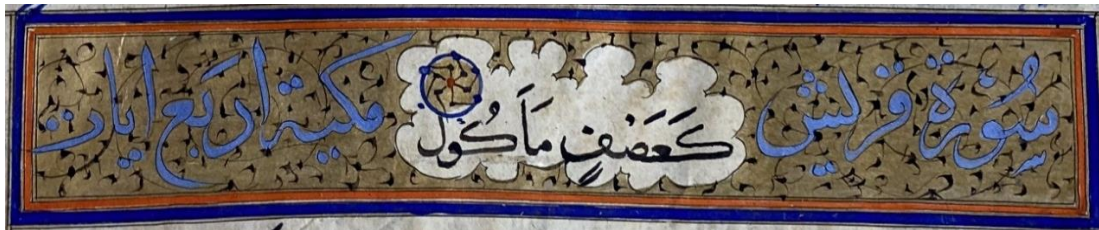 سُورَة قريش كَعَصْفٍ مَأكُولٍ مكية اربَع ايات